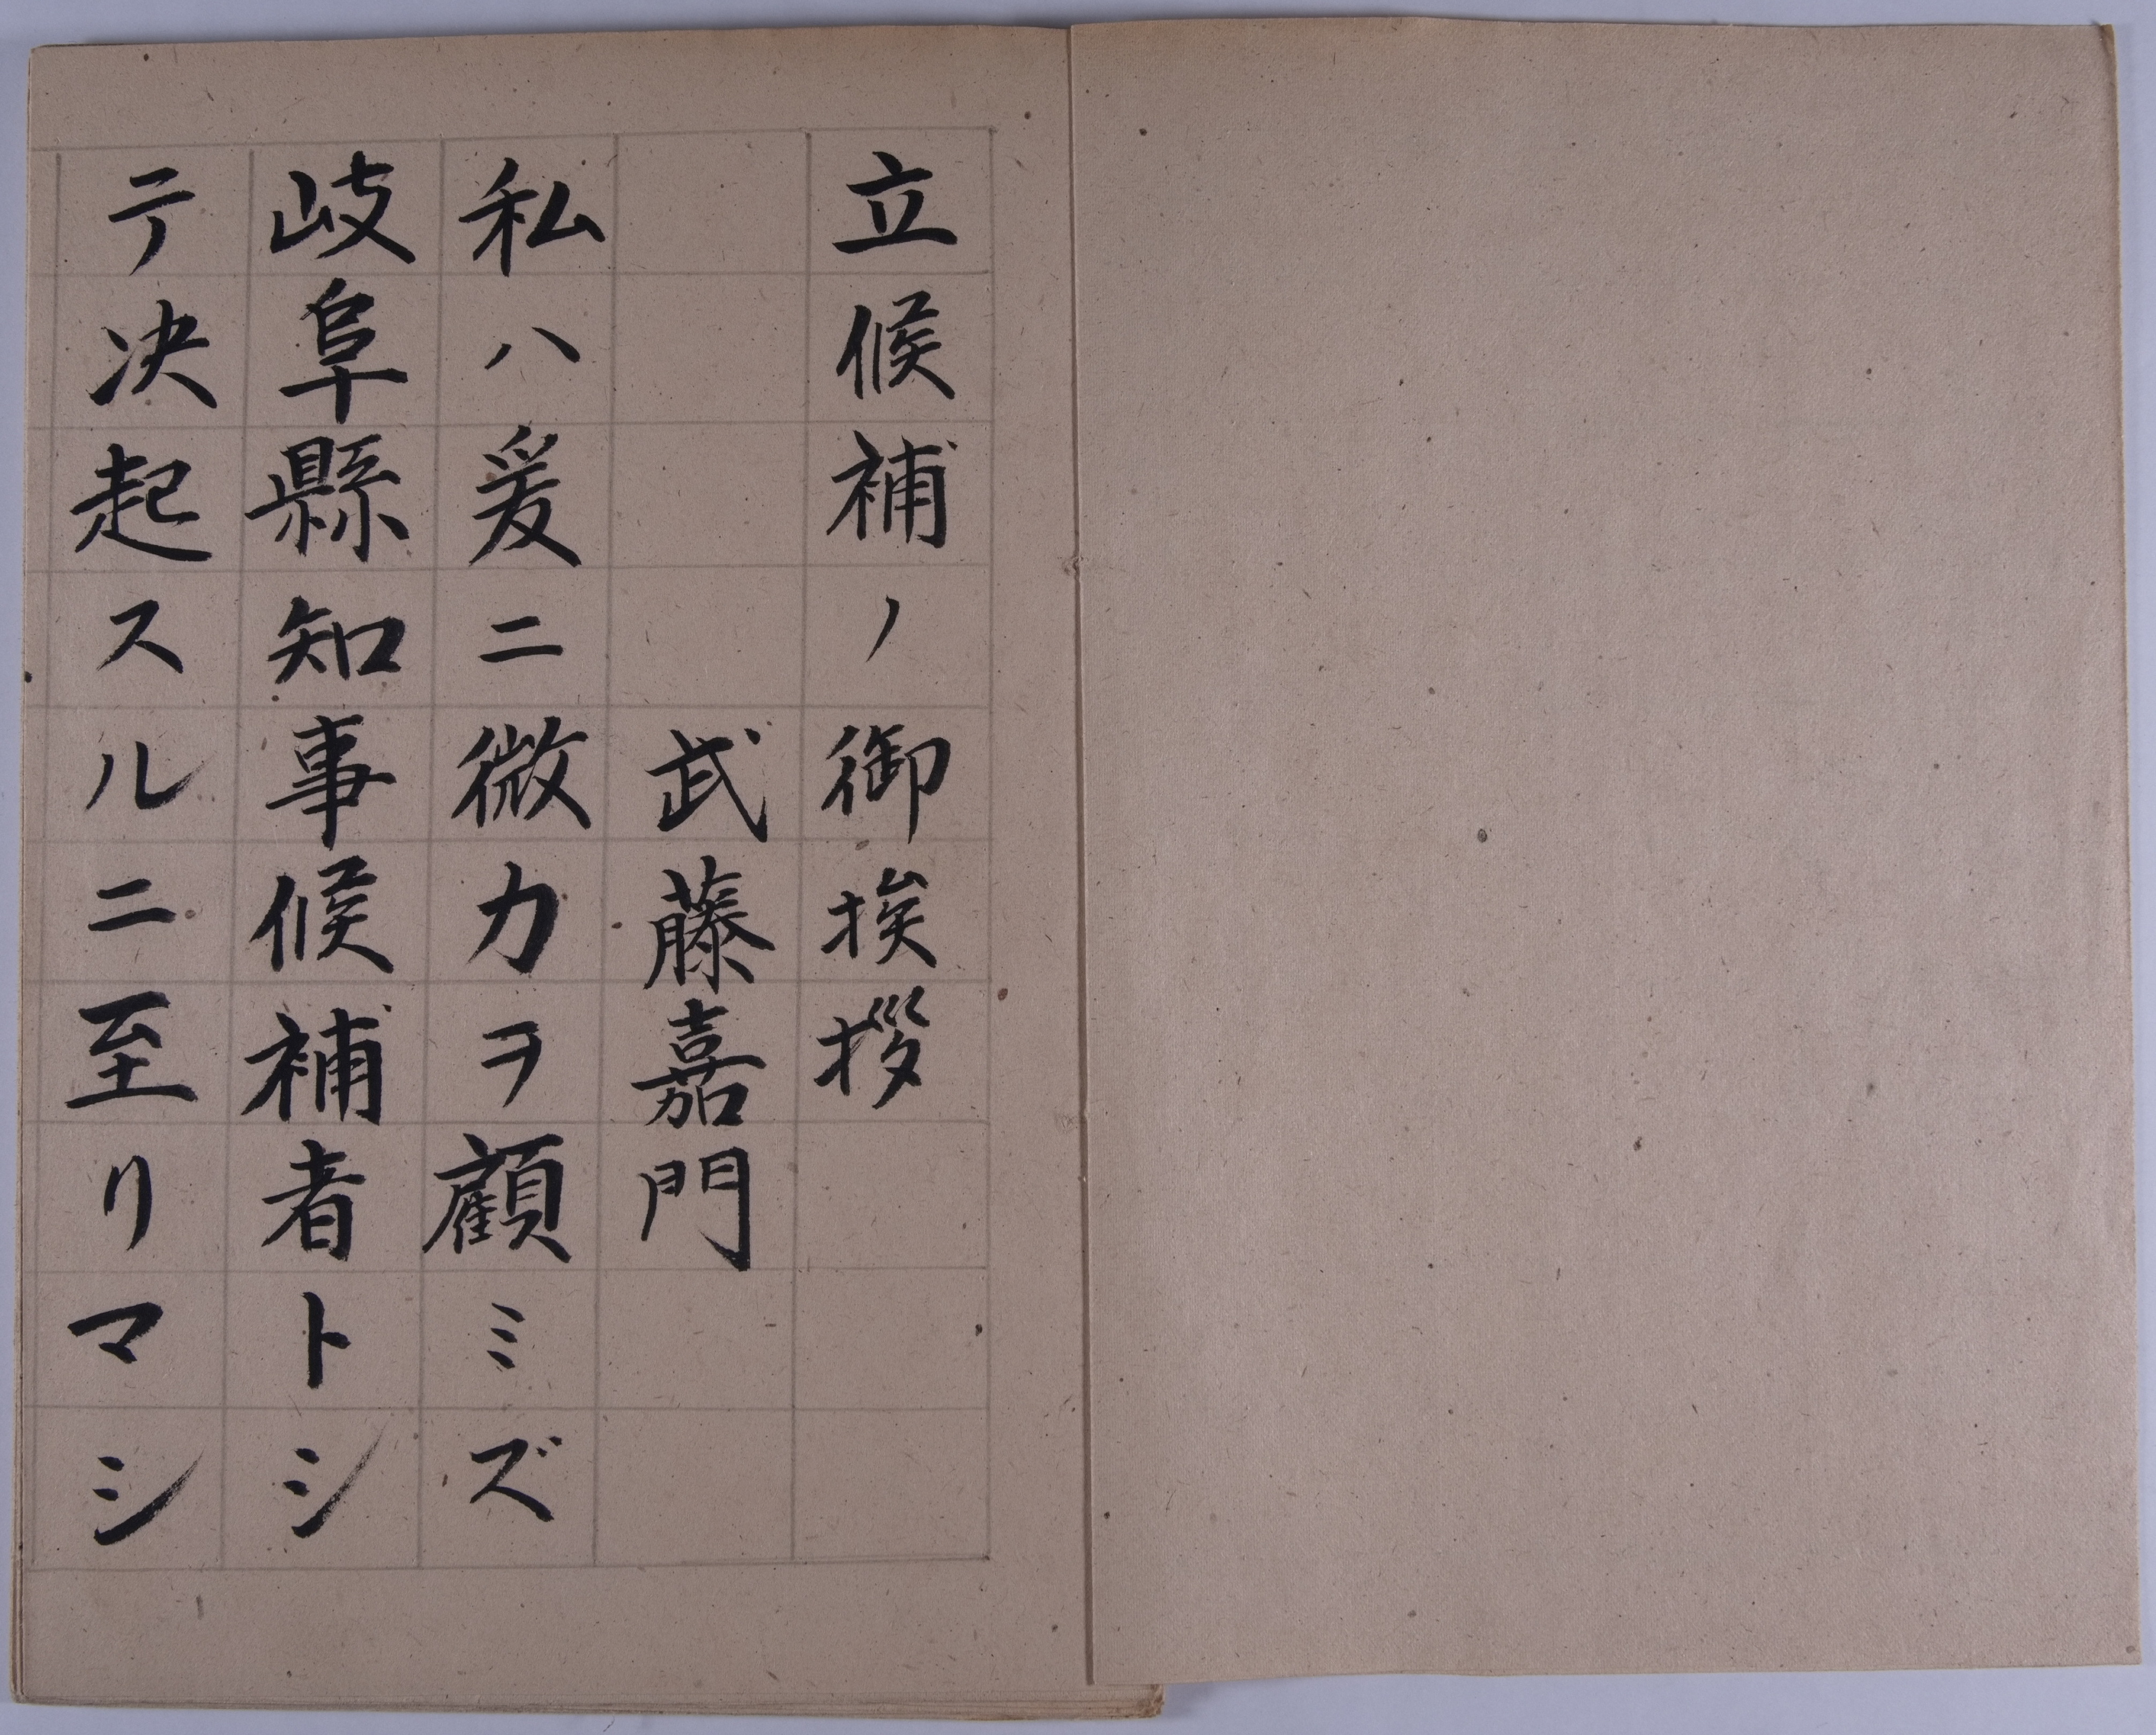 立候補ノ御挨拶
武藤嘉門
私ハ爰ニ微力ヲ顧ミズ
岐阜縣知事候補者トシ
テ决起スルニ至リマシ